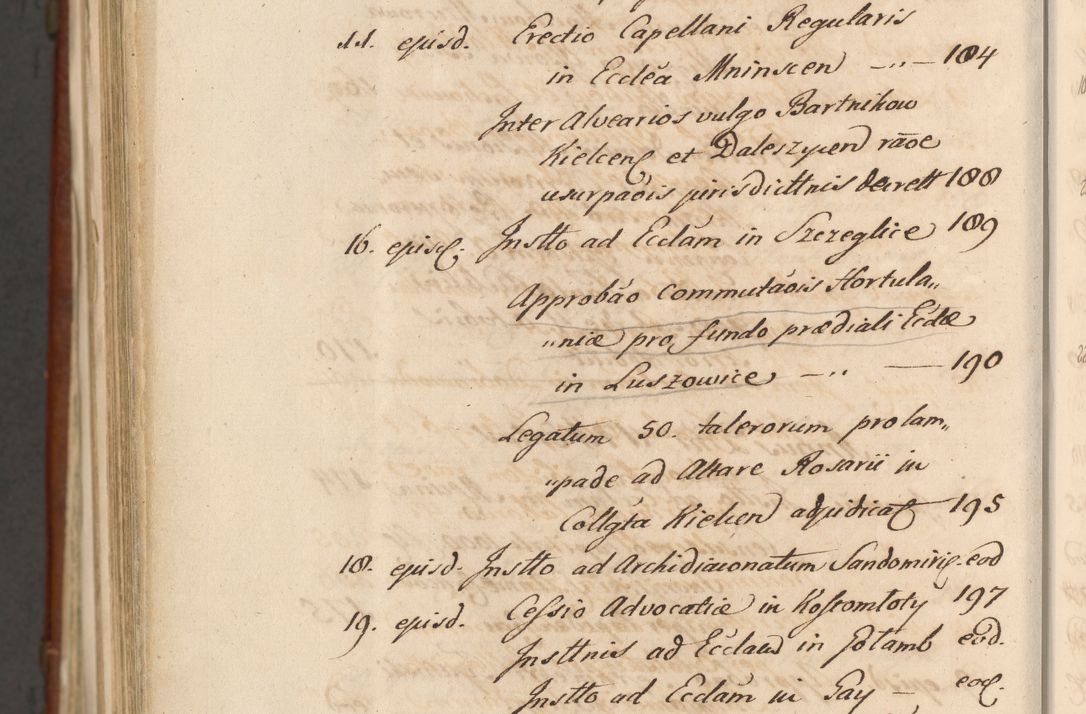 11. ejusd. Erectio Capellani Regularis
in Ecclêa Mninscen —„— 184
Inter Alvearios vulgo Bartnikow
Kielcen et Daleszycen rāoe
usurpaōis jurisdicttnis decrett 188
16. ejusd. Instto ad Ecclām in Szczeglice 189
Approbāo Commutāois Hortula„
„niæ pro fundo prædiali Ecclæ
in Luszowice —„— 190
Legatum 50. talerorum pro lam„
„pade ad Altare Rosarii in
Collgta Kielcen adjudicat 195
18. ejusd. Instto ad Archidiaconatum Sandomirien. eod
19. ejusd. Cessio Advocatiæ in Kostomłoty 197
Insttnis ad Ecclam in Gołamb eod.
Instto ad Ecclām in Gay — eod.